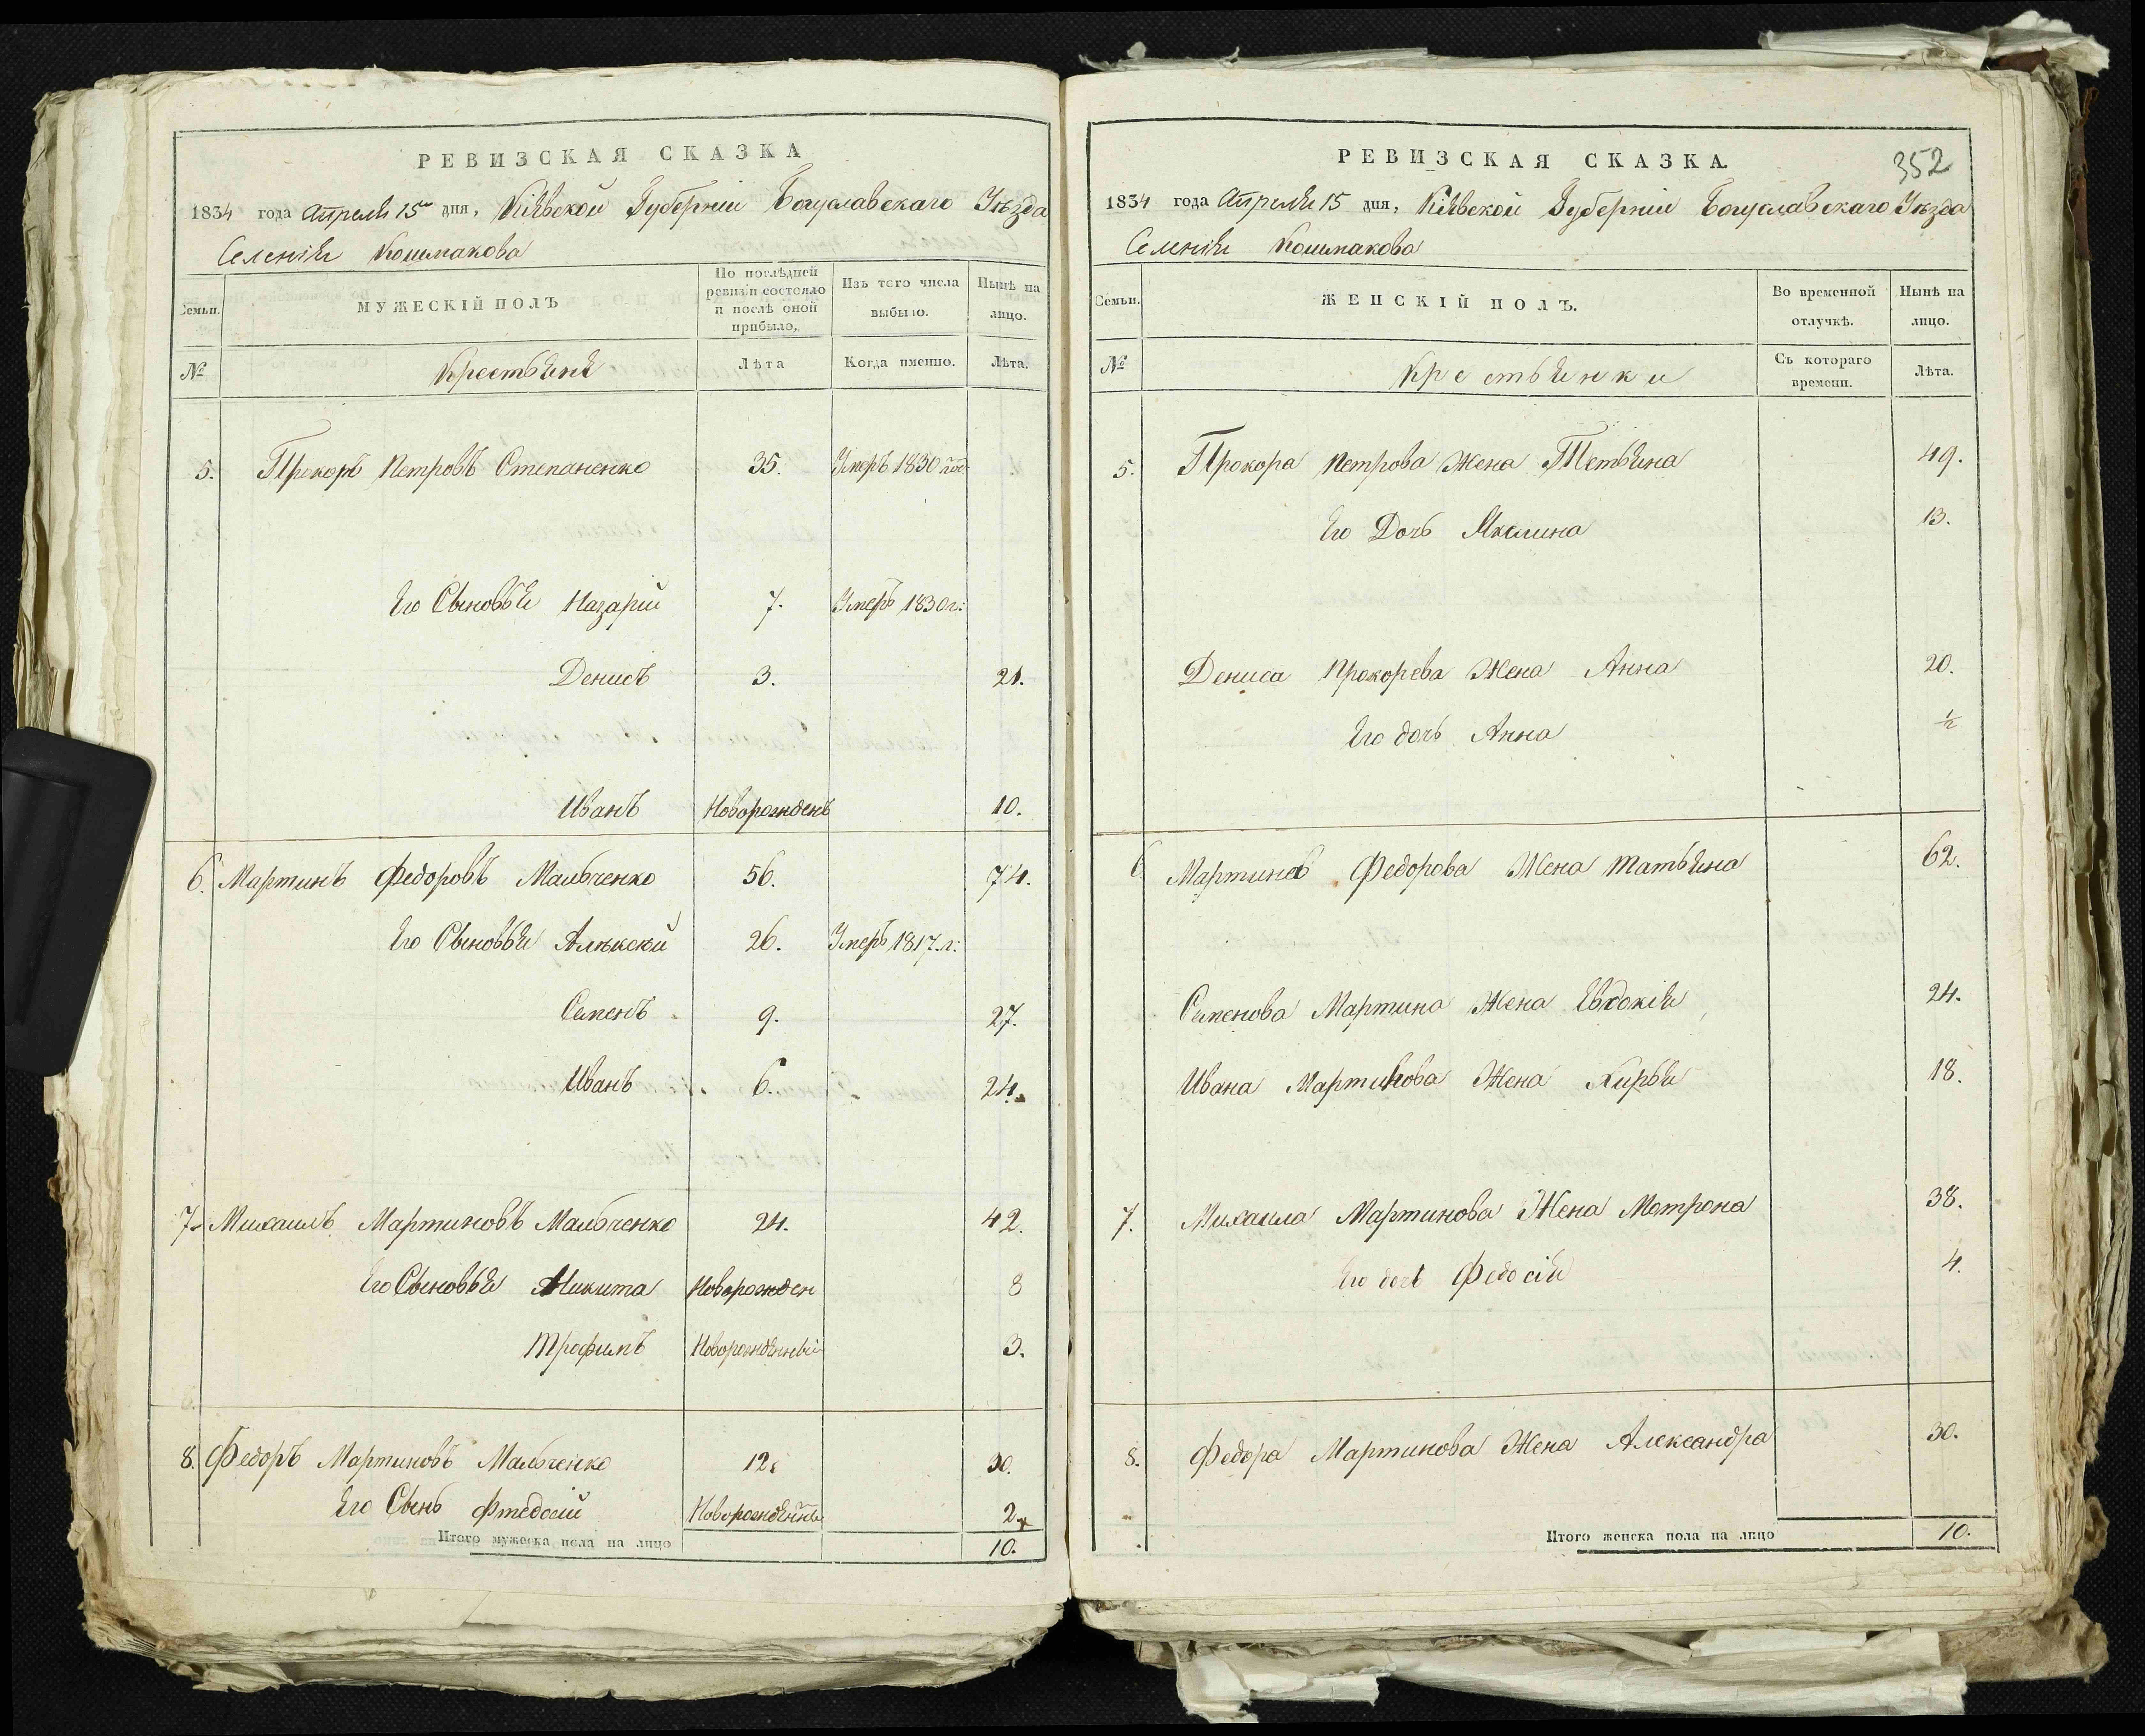 РЕВИЗСКАЯ СКАЗКА
1834 года Апреля 15 дня, Кіевской Губерніи Богуславскаго Уѣзда
Селенія Кошмакова
Семьи.
МУЖЕСКІЙ ПОЛЪ
По послѣдней ревизіи состояло и послѣ оной прибыло,
Изъ того числа выбыло.
Нынѣ на лицо.
№
Крестьяне
Лѣта
Когда именно.
Лѣта.
5. Прокоръ Петровъ Степаненко 35. Умеръ 1830 год
Его Сыновья Назарій 7. Умеръ 1830 г:
Денисъ 3. 21.
Иванъ Новорожденъ 10.
6. Мартинъ Федоровъ Мальченко 56. 74.
Его Сыновья Алексѣй 26. Умеръ 1817. г:
Семенъ 9. 27.
Иванъ 6. 24.
7. Михаилъ Мартиновъ Мальченко 24. 42.
Его Сыновья Никита Новорожден 8
Трофимъ Новорожденный 3.
8. Федоръ Мартиновъ Мальченко 12. 30.
Его Сынъ Фтедосій 2
Итого мужеска пола на лицо 10.
РЕВИЗСКАЯ СКАЗКА
352
1834 года Апреля 15 дня, Кіевской Губерніи Богуславскаго Уѣзда
Селенія Кошмакова
Семьи.
ЖЕНСКІЙ ПОЛЪ.
Во временной отлучкѣ.
Нынѣ на лицо.
№
Крестьянки
Съ котораго времени.
Лѣта.
5. Прокора Петрова Жена Тетьяна 49.
Его Дочь Акилина 13.
Дениса Прокорева Жена Анна 20.
Его дочь Анна ½
6 Мартина Федорова Жена Татьяна 62.
Семенова Мартина Жена Евдокія 24.
Ивана Мартинова Жена 18.
7. Михаила Мартинова Жена Мотрона 38.
Его дочь Федосія 4.
8. Федора Мартинова Жена Александра 30.
Итого женска пола на лицо 10.